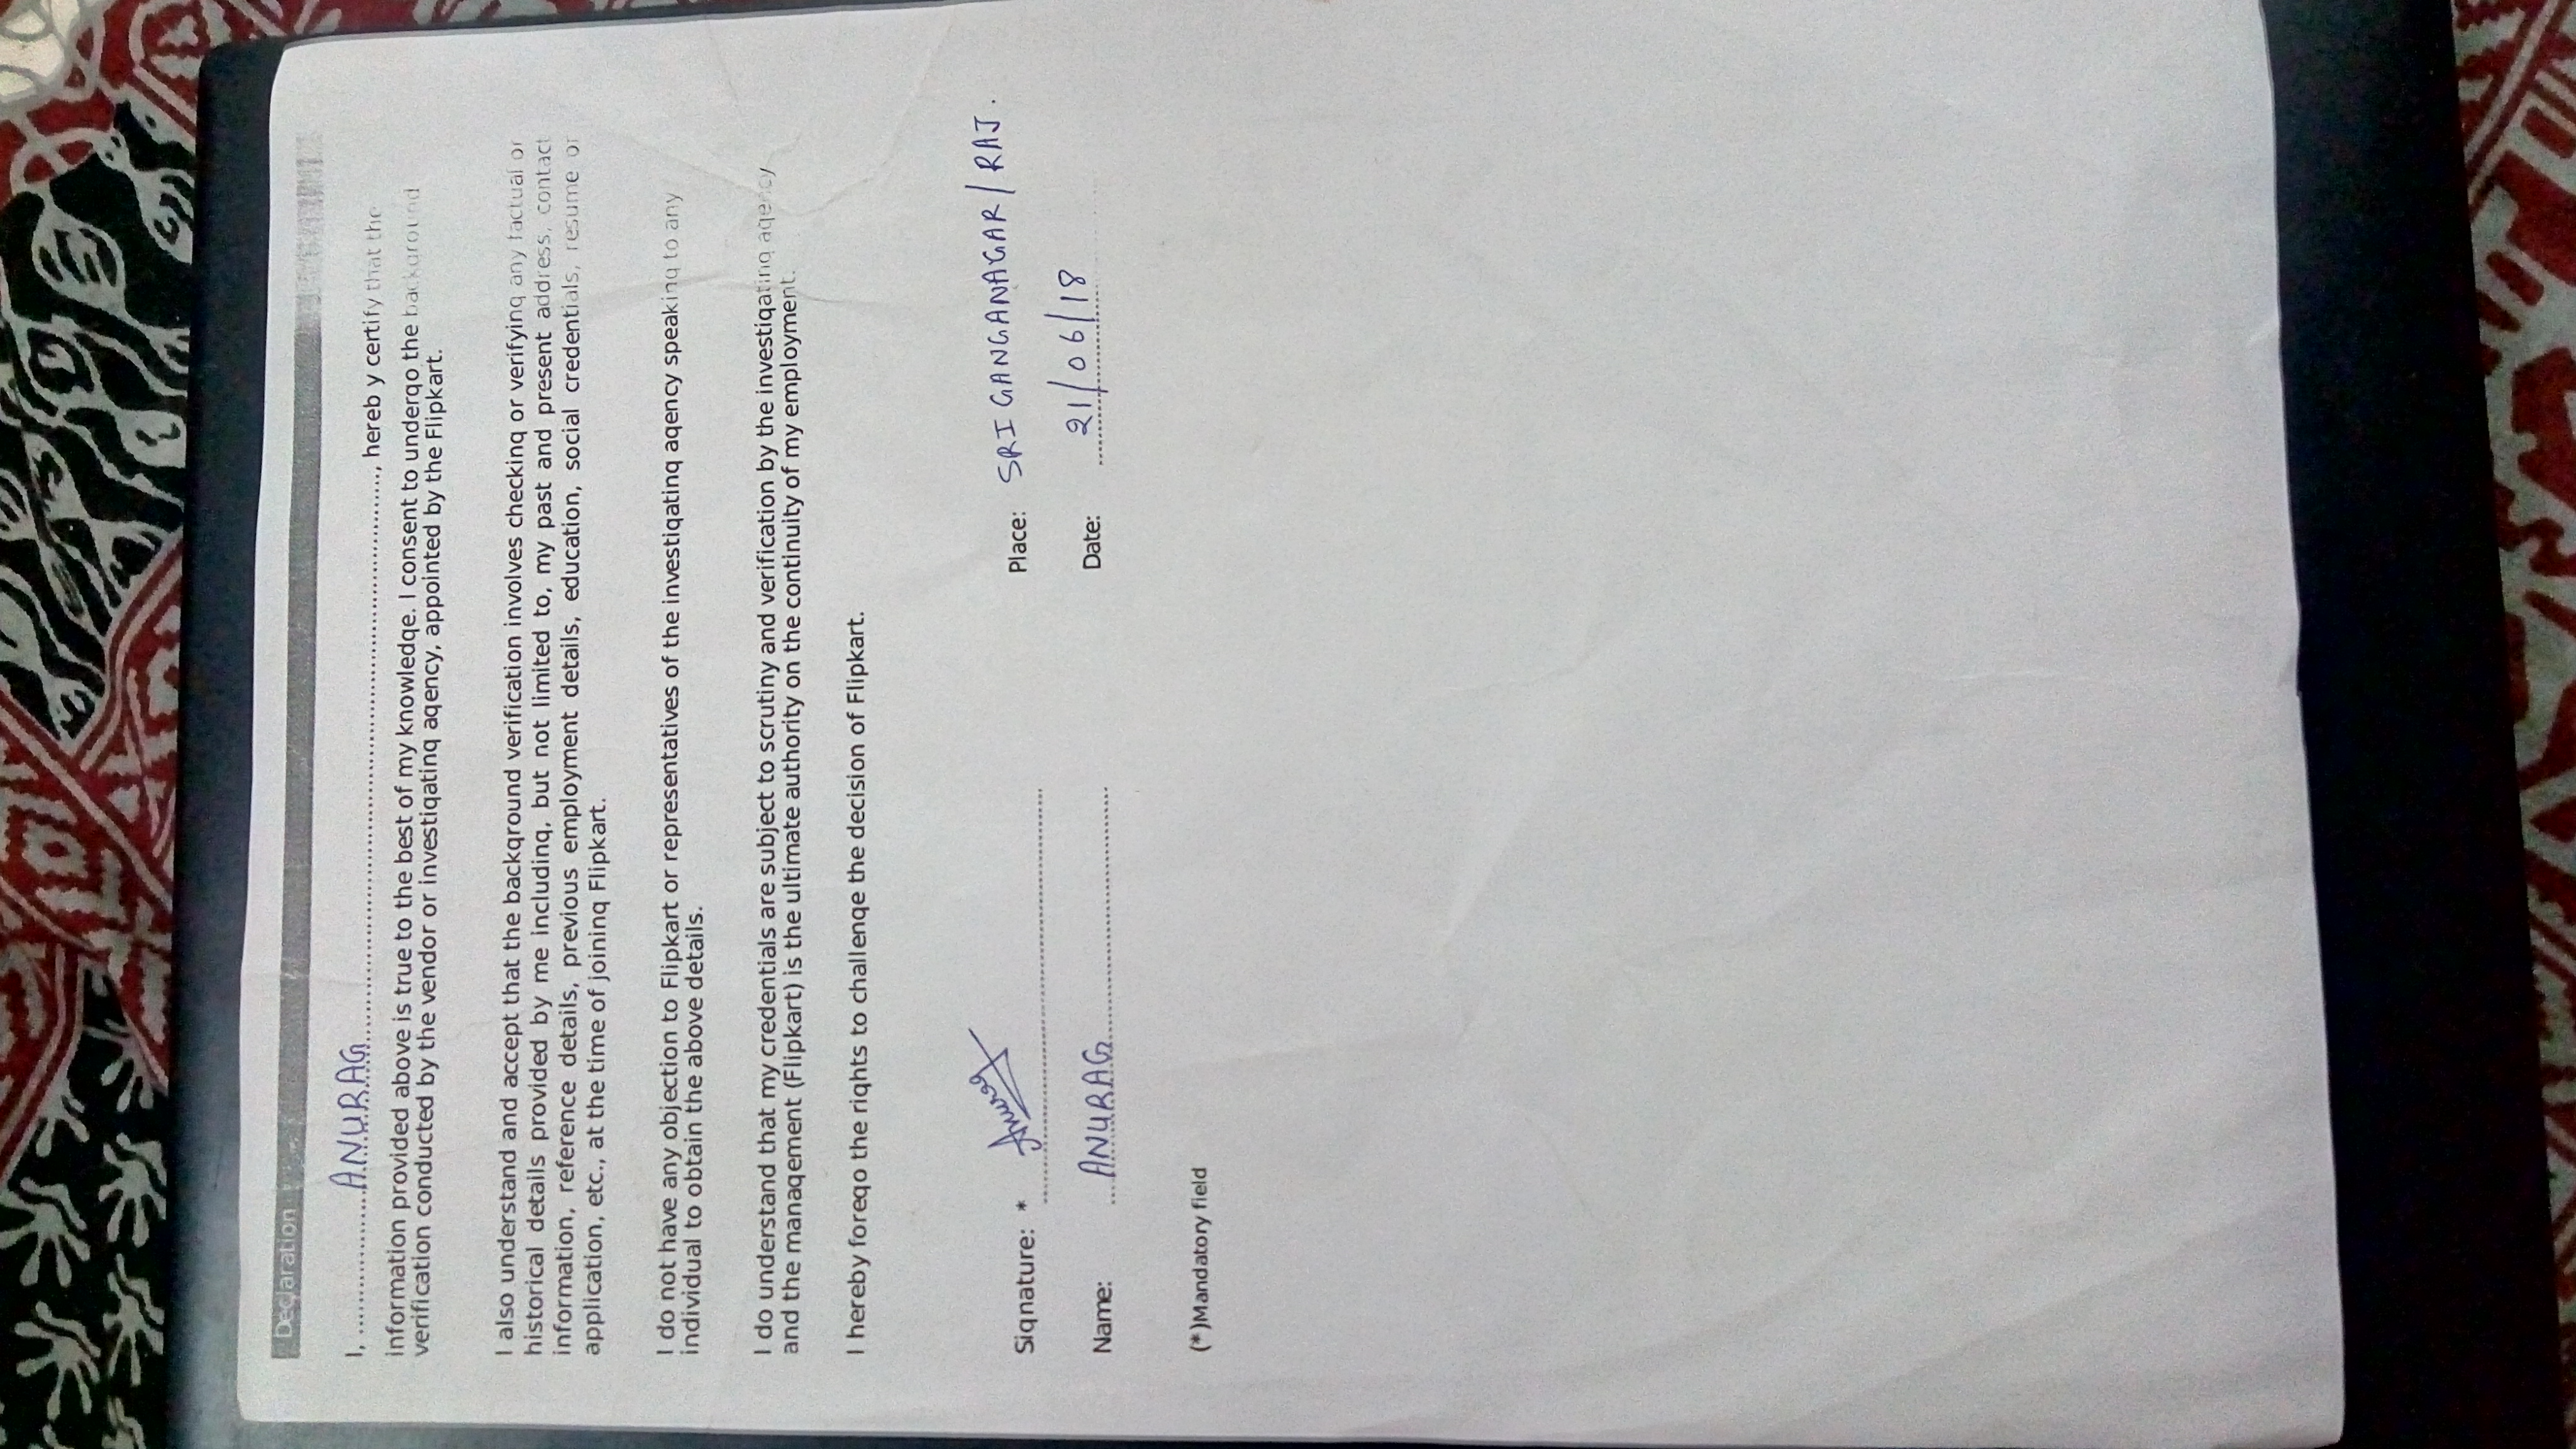 Declaration
I, ANURAG, hereb y certify that the
information provided above is true to the best of my knowledge. I consent to undergo the background
verification conducted by the vendor or investigating agency, appointed by the Flipkart.
I also understand and accept that the background verification involves checking or verifying any factual or
historical details provided by me including, but not limited to, my past and present address, contact
information, reference details, previous employment details, education, social credentials, resume or
application, etc., at the time of joining Flipkart.
I do not have any objection to Flipkart or representatives of the investigating agency speaking to any
individual to obtain the above details.
I do understand that my credentials are subject to scrutiny and verification by the investigating agency
and the management (Flipkart) is the ultimate authority on the continuity of my employment.
I hereby forego the rights to challenge the decision of Flipkart.
Signature: * Anurag Place: SRI GANGANAGAR/RAJ.
Name: ANURAG Date: 21/06/18
(*)Mandatory field